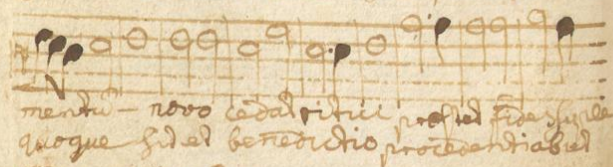 mentũ – novo cedat ritui prestet fides suple
quoque sit et benedictio procedenti ab ut